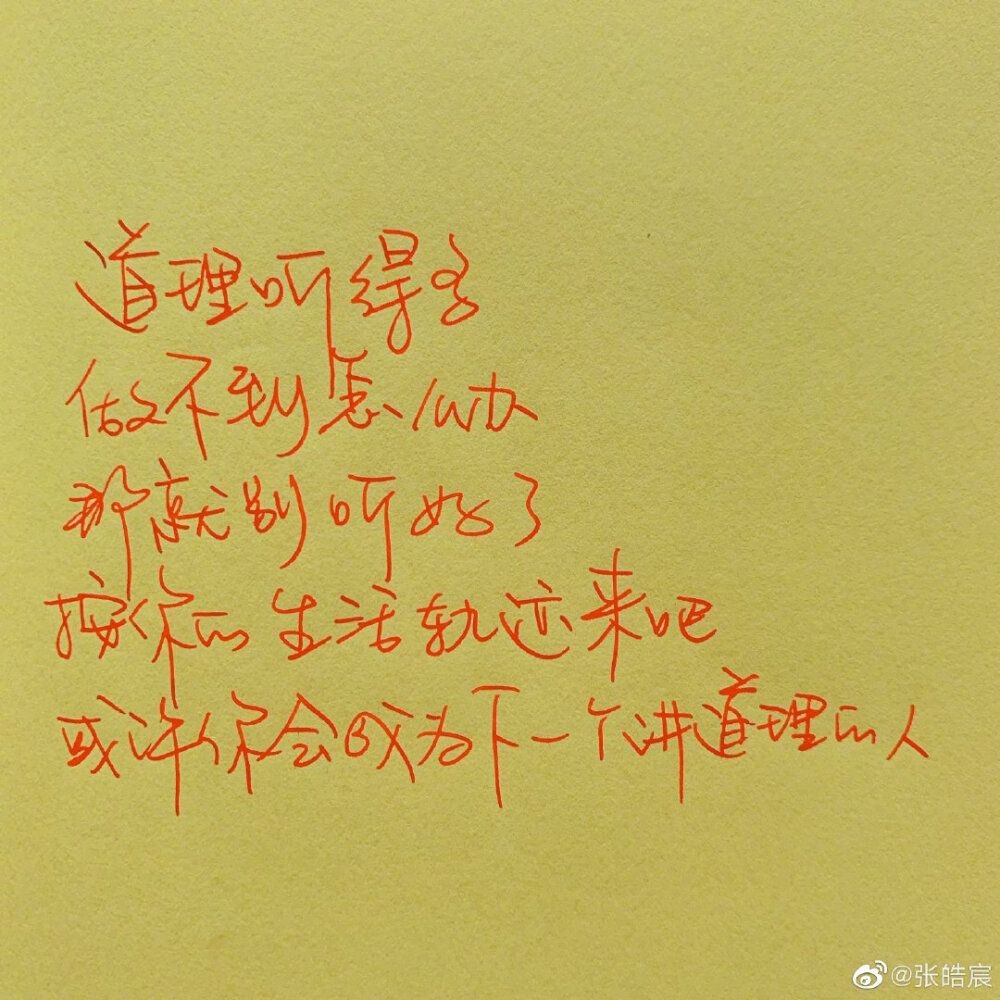 道理听得多
做不到怎么办
那就别听好了
按你的生活轨迹来吧
或许你会成为下一个讲道理的人
@张皓宸